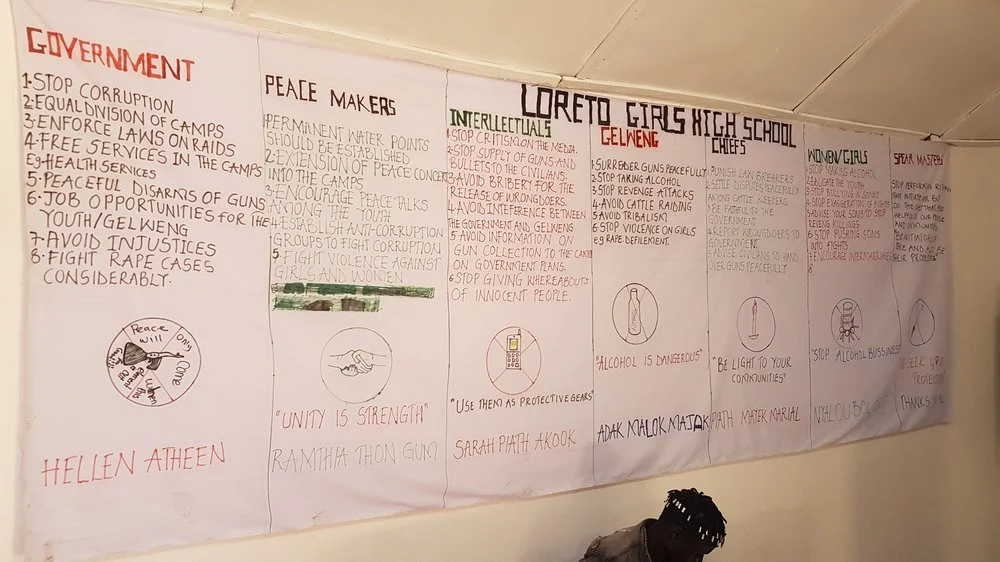 LORETO GIRLS HIGH SCHOOL
GOVERNMENT
1·STOP CORRUPTION
2·EQUAL DIVISION OF CAMPS
3·ENFORCE LAWS ON RAIDS
4·FREE SERVICES IN THE CAMPS
Eg·HEALTH SERVICES
5·PEACEFUL DISARMS OF GUNS
6·JOB OPPORTUNITIES FOR THE
YOUTH/GELWENG
7·AVOID INJUSTICES
8·FIGHT RAPE CASES
CONSIDERABLY.
Peace
will
only
Come
HELLEN ATHEEN
PEACE MAKERS
PERMANENT WATER POINTS
SHOULD BE ESTABLISHED
2·EXTENSION OF PEACE CONCERT
INTO THE CAMPS
3·ENCOURAGE PEACE TALKS
AMONG THE YOUTH
4·ESTABLISH ANTI-CORRUPTION
GROUPS TO FIGHT CORRUPTION
5·FIGHT VIOLENCE AGAINST
GIRLS AND WOMEN
"UNITY IS STRENGTH"
RAMTHIA THON GUM
INTERLLECTUALS
1·STOP CRITISKON THE MEDIA.
2·STOP SUPPLY OF GUNS AND
BULLETS TO THE CIVILIANS.
3·AVOID BRIBERY FOR THE
RELEASE OF WRONGDOERS.
4·AVOID INTEFERENCE BETWEEN
THE GOVERNMENT AND GELWENG
5·AVOID INFORMATION ON
GUN COLLECTION TO THE CAMPS
ON GOVERNMENT PLANS.
6·STOP GIVING WHEREABOUTS
OF INNOCENT PEOPLE.
"USE THEM AS PROTECTIVE GEARS"
SARAH PIATH AKOOK
GELWENG
1·SURREDER GUNS PEACEFULLY
2·STOP TAKING ALCOHOL
3·STOP REVENGE ATTACKS
4·AVOID CATTLE RAIDING
5·AVOID TRIBALISM
6·STOP VIOLENCE ON GIRLS
eg RAPE DEFILEMENT.
"ALCOHOL IS DANGEROUS"
ADAK MALOK MAJAK
CHIEFS
1·PUNISH LAW BREAKERS
2·SETTLE DISPUTES PEACEFULLY
AMONG CATTLE KEEPERS
3·BE FAITHFUL TO THE
GOVERNMENT
4·REPORT WRONGDOERS TO
GOVERNMENT
5·ADVISE CIVILIANS TO HAND
OVER GUNS PEACEFULLY
"BE LIGHT TO YOUR
COMMUNITIES"
PIATH MAYEK MARIAL
WOMEN/GIRLS
1·STOP MAKING ALCOHOL
2·EDUCATE THE YOUTH
3·STOP INSULTING SONGS
4·STOP OF FIGHTS
5·ADVISE YOUR SONS TO STOP
REVENGE KILLINGS
6·STOP PRAISING SONS
INTO FIGHTS
7·ENCOURAGE INTERMARRIAGES
8
"STOP ALCOHOL BUSSINESS"
NYALOU
SPEAR MASTERS
STOP PERFORMING
BUT
DO THE
OUR PEOPLE
AND
BE
"SEEK YOUR
THANKS